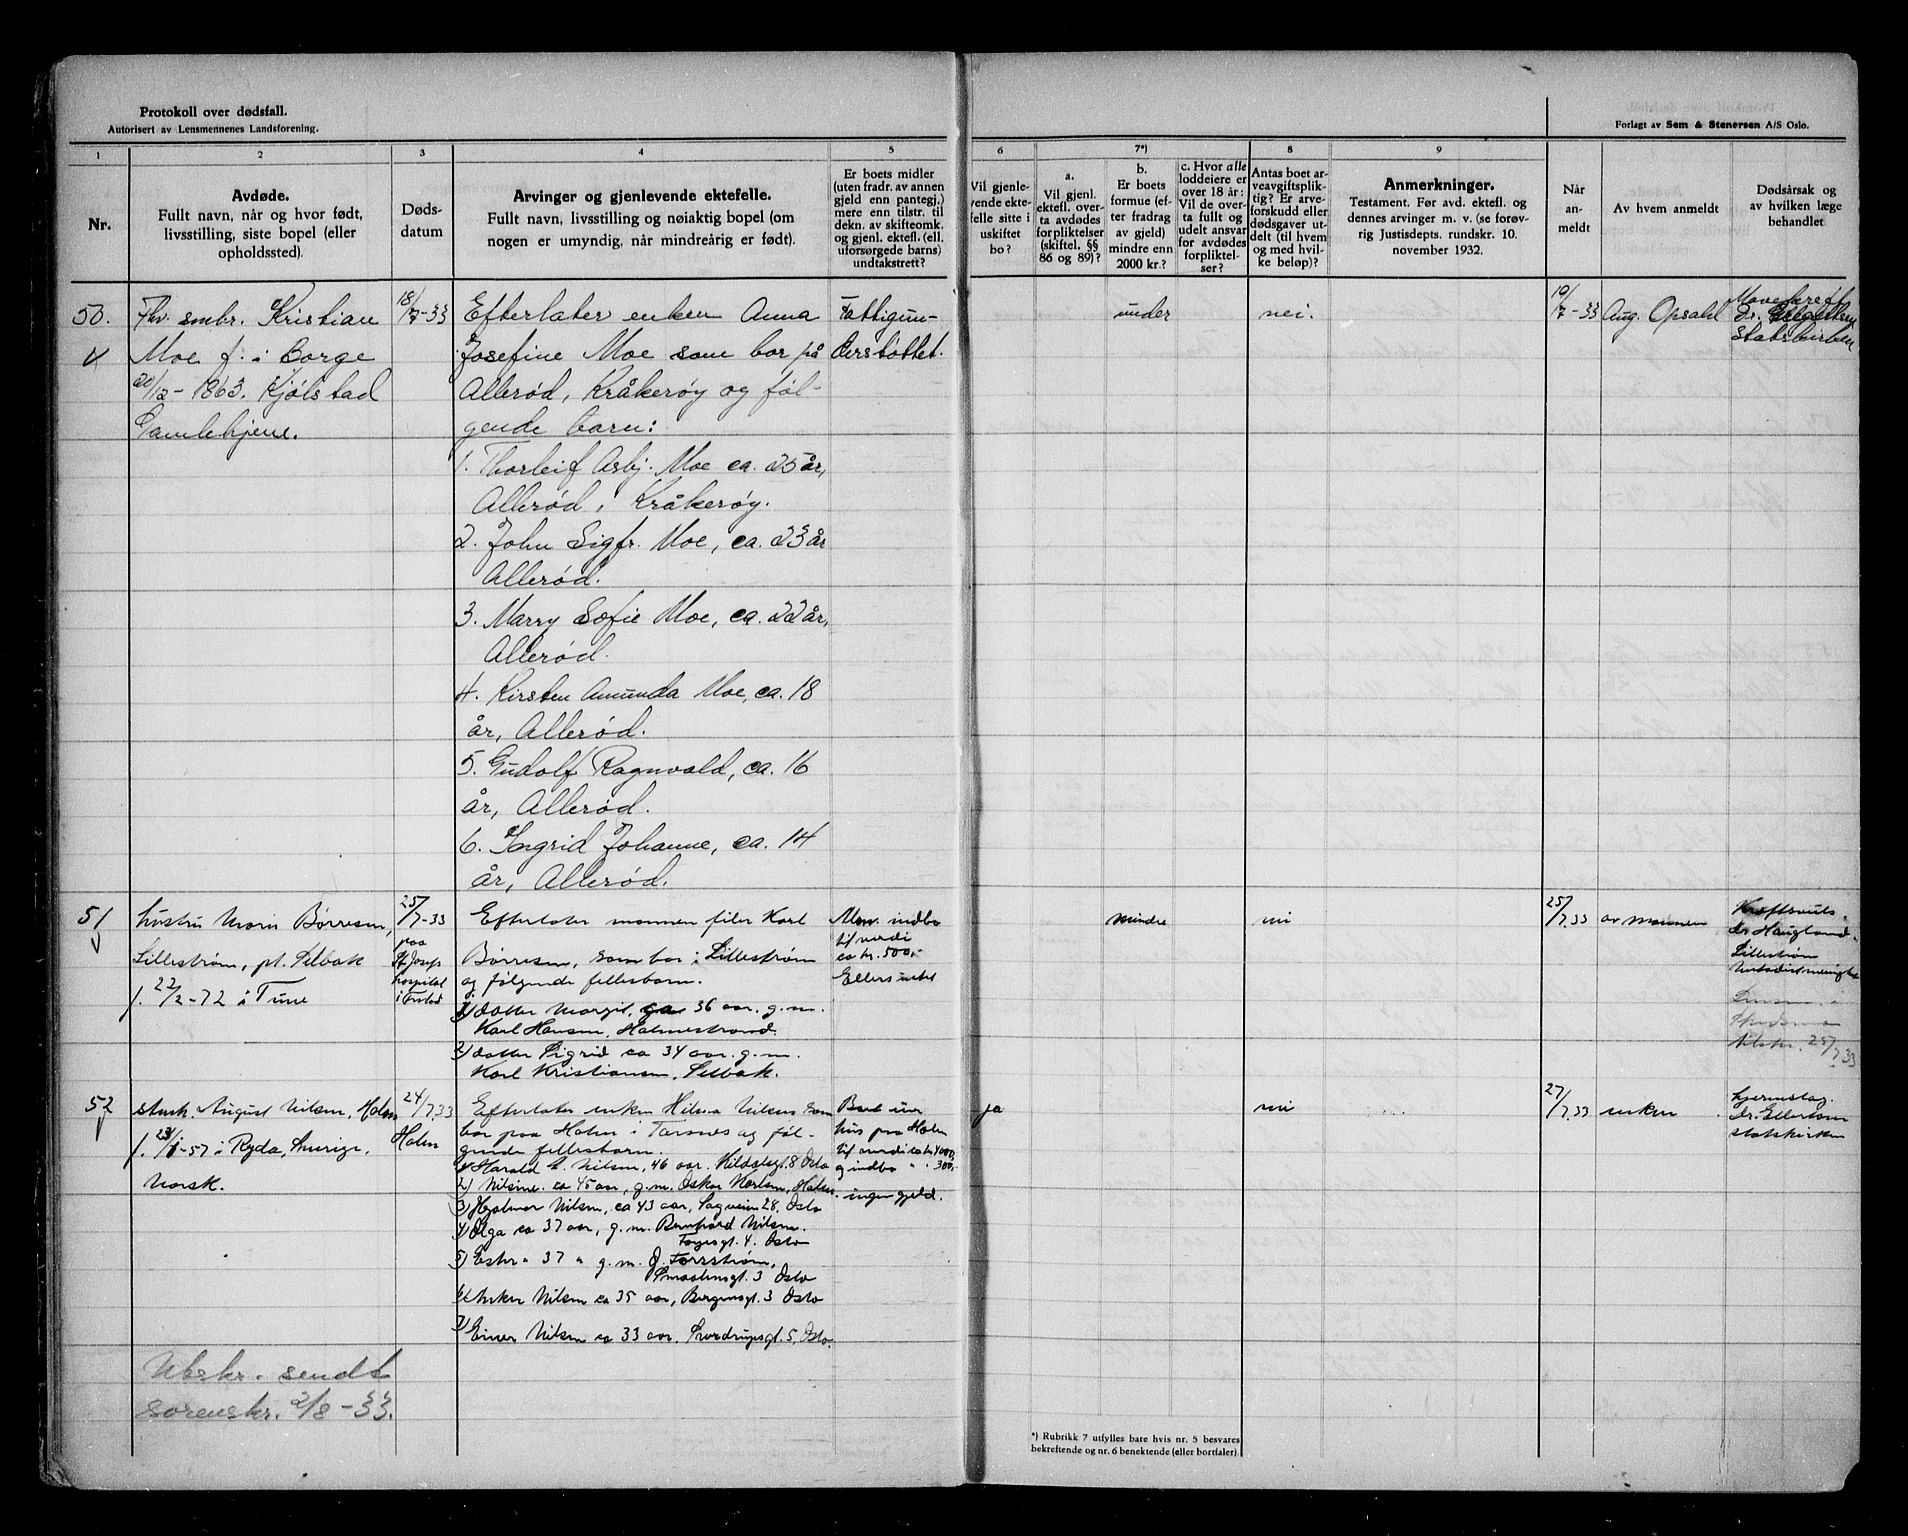 Protokoll over dødsfall.
Autorisert av Lensmennenes Landsforening.
Forlagt av Sem & Stenersen A/S Oslo.
1
2
3
4
5
6
7*)
8
9
Nr.
Avdøde.
Fullt navn, når og hvor født,
livsstilling, siste bopel (eller
opholdssted).
Døds-
datum
Arvinger og gjenlevende ektefelle.
Fullt navn, livsstilling og nøiaktig bopel (om
nogen er umyndig, når mindreårig er født).
Er boets midler
(uten fradr. av annen
gjeld enn pantegj.)
mere enn tilstr. til
dekn. av skifteomk.
og gjenl. ektefl. (ell.
uforsørgede barns)
undtakstrett?
Vil gjenle-
vende ekte-
felle sitte i
uskiftet
bo?
a.
Vil gjenl.
ektefl. over-
ta avdødes
forpliktelser
(skiftel. §§
86 og 89)?
b.
Er boets
formue (ef-
ter fradrag
av gjeld)
mindre enn
2000 kr.?
c. Hvor alle
loddeiere er
over 18 år:
Vil de over-
ta fullt og
udelt ansvar
for avdødes
forpliktel-
ser?
Antas boet ar-
veavgiftsplik-
tig? Er arve-
forskudd eller
dødsgaver ut-
delt (til hvem
og med hvil-
ke beløp)?
Anmerkninger.
Testament. Før avd. ektefl. og
dennes arvinger m. v. (se forøv-
rig Justisdepts. rundskr. 10.
november 1932.
Når
an-
meldt
Av hvem anmeldt
Dødsårsak og
av hvilken læge
behandlet
50.
Fhv. smbr. Kristian
Moe f. i Borge
20/12-1863. Kjølstad
Gamlehjem.
18/7-33
Efterlater enken Anna
Josefine Moe som bor på
Allerød, Kråkerøy og føl-
gende barn:
1. Thorleif Asbj. Moe ca. 25 år,
Allerød, Kråkerøy.
2. John Sigfr. Moe, ca. 23 år
Allerød.
3. Marry Sofie Moe, ca. 22 år,
Allerød.
4. Kirsten Amunda Moe, ca. 18
år, Allerød.
5. Gudolf Ragnvald, ca. 16
år, Allerød.
6. Ingrid Johanne, ca. 14
år, Allerød.
Fattigun-
derstøttet.
under
nei.
19/7-33
Aug. Opsahl
Mavekreft
dr.
51
hustru Marie Børresen,
Lillestrøm, pt. Selbak
f. 22/2-72 i Tune
25/7-33
paa
St. Joseps
hospital
i Frstad
Efterlater mannen filer Karl
Børresen, som bor i Lillestrøm
og følgende fellesbarn.
1) datter Margit, ca 36 aar. g.m.
Karl Hansen, Holmestrand.
2) datter Sigrid ca 34 aar. g.m.
Karl Kristiansen, Selbak.
Alm. indbo
til verdi
ca kr. 500,-
Ellers intet
mindre
nei
25/7.33
av mannen
dr. Haugland
Lillestrøm
25/7 33
52
August Nilsen, Holm
f. 23/1-57 i Ryda, Sverige,
Norsk.
24/7.33
Holm
Efterlater enken Hilma Nilsen som
bor paa Holm i Torsnes og føl-
gende fellesbarn.
1) Harald A. Nilsen, 46 aar. Kildalsgt. 8 Oslo
2) Nilsine. ca 45 aar, g.m. Oskar Karlsen, Holm.
3) Hjalmar Nilsen, ca 43 aar, Sagveien 28. Oslo
4) Olga ca 37 aar, g.m. Bernhard Nilsen.
Fagesgt. 4. Oslo
5) Ester " 37 " g.m. J. Forsstrøm,
Smaalensgt. 3 Oslo
6) Anker Nilsen ca 35 aar, Bergensgt. 3 Oslo
7) Einar Nilsen ca 33 aar. Sverdrupsgt. 5, Oslo.
Boet eier
hus paa Holm
til verdi ca kr 4000,
og indbo " " 300,-
ingen gjeld.
ja
nei
27/7.33
enken
hjerneslag.
dr. Ellertsen
statskirken
Utskr. sendt
sorenskr. 2/8-33.
*) Rubrikk 7 utfylles bare hvis nr. 5 besvares
bekreftende og nr. 6 benektende (eller bortfaler).